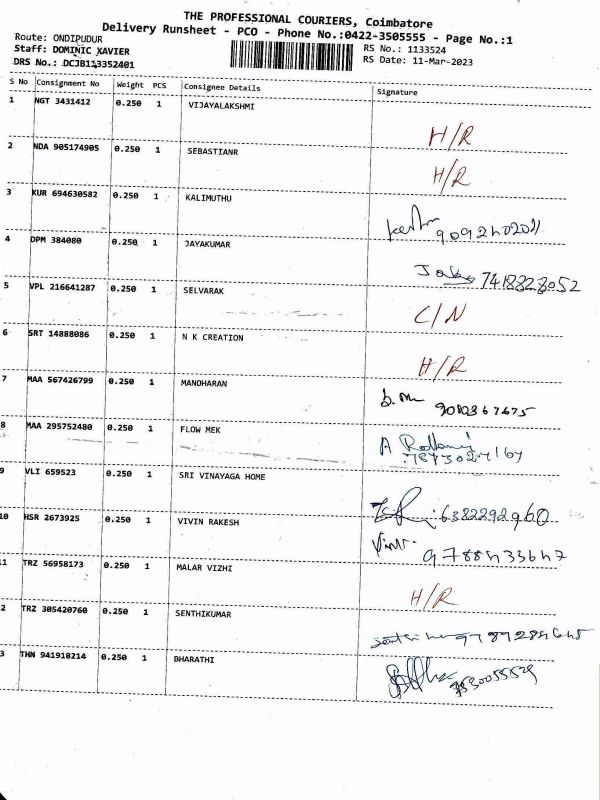 THE PROFESSIONAL COURIERS, Coimbatore
Delivery Runsheet - PCO - Phone No.:0422-3505555 - Page No.:1
Route: ONDIPUDUR
Staff: DOMINIC XAVIER
DRS No.: DCJB113352401
RS No.: 1133524
RS Date: 11-Mar-2023
S No Consignment No Weight PCS Consignee Details Signature
1 NGT 3431412 0.250 1 VIJAYALAKSHMI H/R
2 NDA 905174905 0.250 1 SEBASTIANR H/R
3 KUR 694630582 0.250 1 KALIMUTHU
4 DPM 384080 0.250 1 JAYAKUMAR 7418828052
5 VPL 216641287 0.250 1 SELVARAK C/N
6 SRT 14888086 0.250 1 N K CREATION H/R
7 MAA 567426799 0.250 1 MANOHARAN
8 MAA 295752480 0.250 1 FLOW MEK
9 VLI 659523 0.250 1 SRI VINAYAGA HOME 6382292960
10 HSR 2673925 0.250 1 VIVIN RAKESH
11 TRZ 56958173 0.250 1 MALAR VIZHI H/R
2 TRZ 305420760 0.250 1 SENTHIKUMAR
3 THN 941918214 0.250 1 BHARATHI